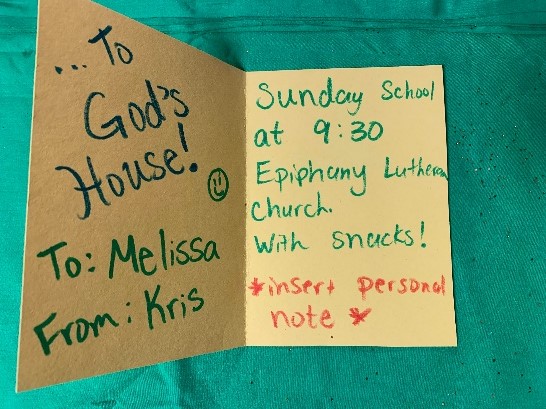 ... To
God's
House!
To: Melissa
From: Kris
Sunday School
at 9:30
Epiphany Lutheran
Church.
With snacks!
*insert personal
note *